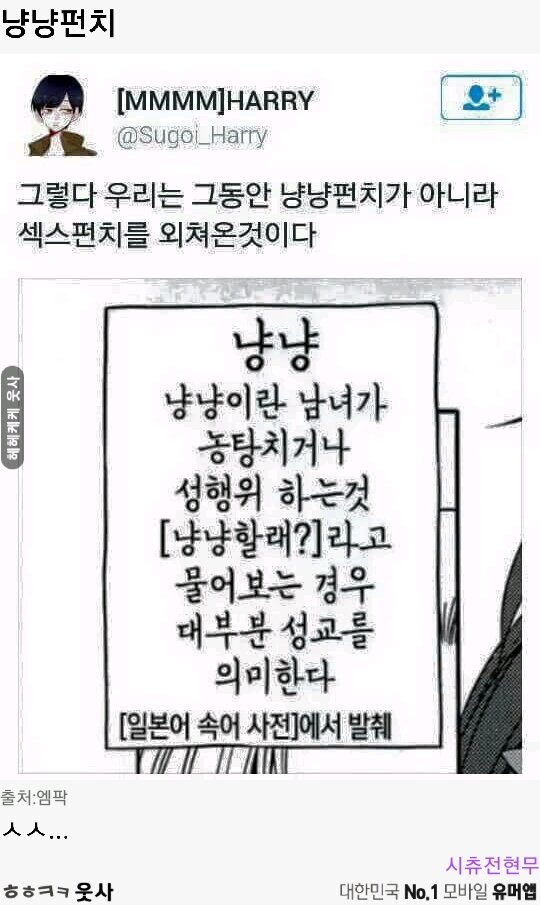 냥냥펀치
[MMMM]HARRY
@Sugoi_Harry
그렇다 우리는 그동안 냥냥펀치가 아니라
섹스펀치를 외쳐온것이다
냥냥
냥냥이란 남녀가
농탕치거나
성행위 하는것
[냥냥할래?]라고
물어보는 경우
대부분 성교를
의미한다
[일본어 속어 사전]에서 발췌
헤헤케케 웃사
출처:엠팍
ㅅㅅ...
시츄전현무
ㅎㅎㅋㅋ 웃사
대한민국 No.1 모바일 유머앱